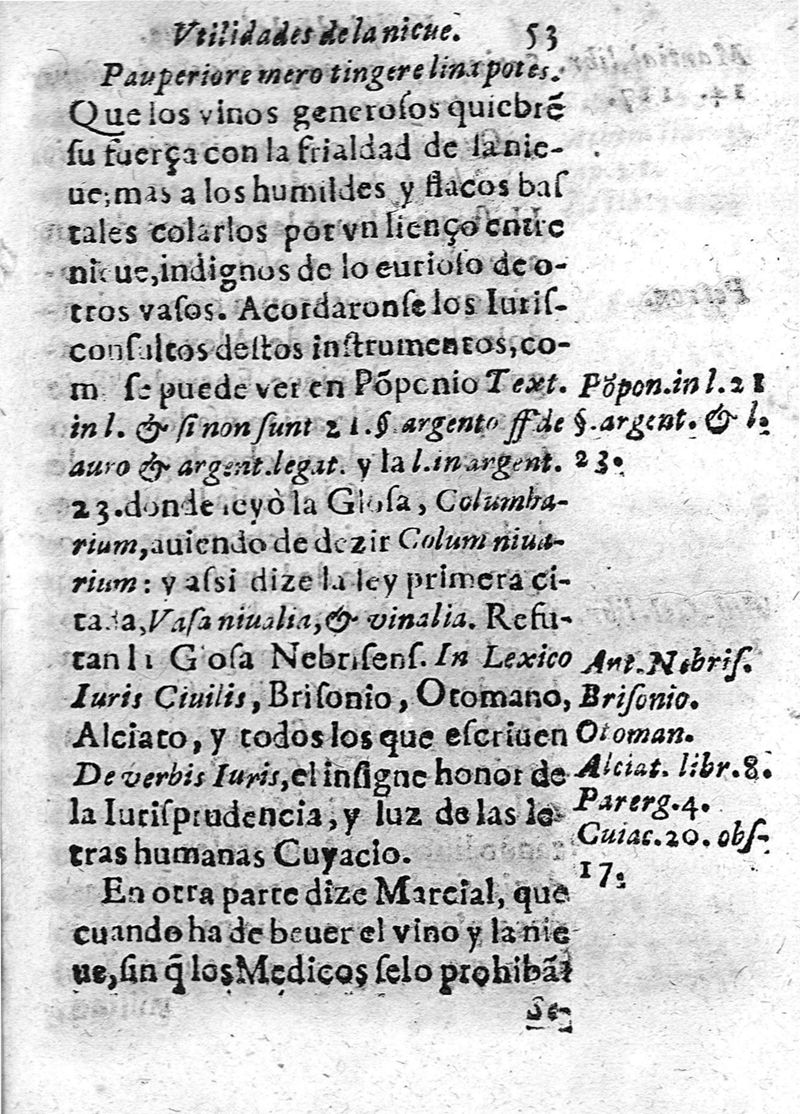 Vtilidades de la nieue. 53
Pauperiore mero tingere lina potes.
Que los vinos generosos quiebrẽ
su fuerça con la frialdad de la nie-
ue; mas a los humildes y flacos bas
tales colarlos por vn lienço entre
nieue, indignos de lo curioso de o-
tros vasos. Acordaronse los Iuris-
consultos destos instrumentos, co-
m se puede ver en Põponio Text.
in l. & si non sunt 21. §. argento ff de
auro & argent. legat. y la l. in argent.
23. donde leyò la Glosa, Columba-
rium, auiendo de dezir Colum niua-
rium: y assi dize la ley primera ci-
tada, Vasa niualia, & vinalia. Refu-
tan la Glosa Nebrisens. In Lexico
Iuris Ciuilis, Brisonio, Otomano,
Alciato, y todos los que escriuen
De verbis Iuris, el insigne honor de
la Iurisprudencia, y luz de las le-
tras humanas Cuyacio.
En otra parte dize Marcial, que
cuando ha de beuer el vino y la nie
ue, sin q̃ los Medicos selo prohibã
Se
Põpon. in l. 21
§. argent. & l.
23.
Ant. Nebris.
Brisonio.
Otoman.
Alciat. libr. 8.
Parerg. 4.
Cuiac. 20. obs-
17.